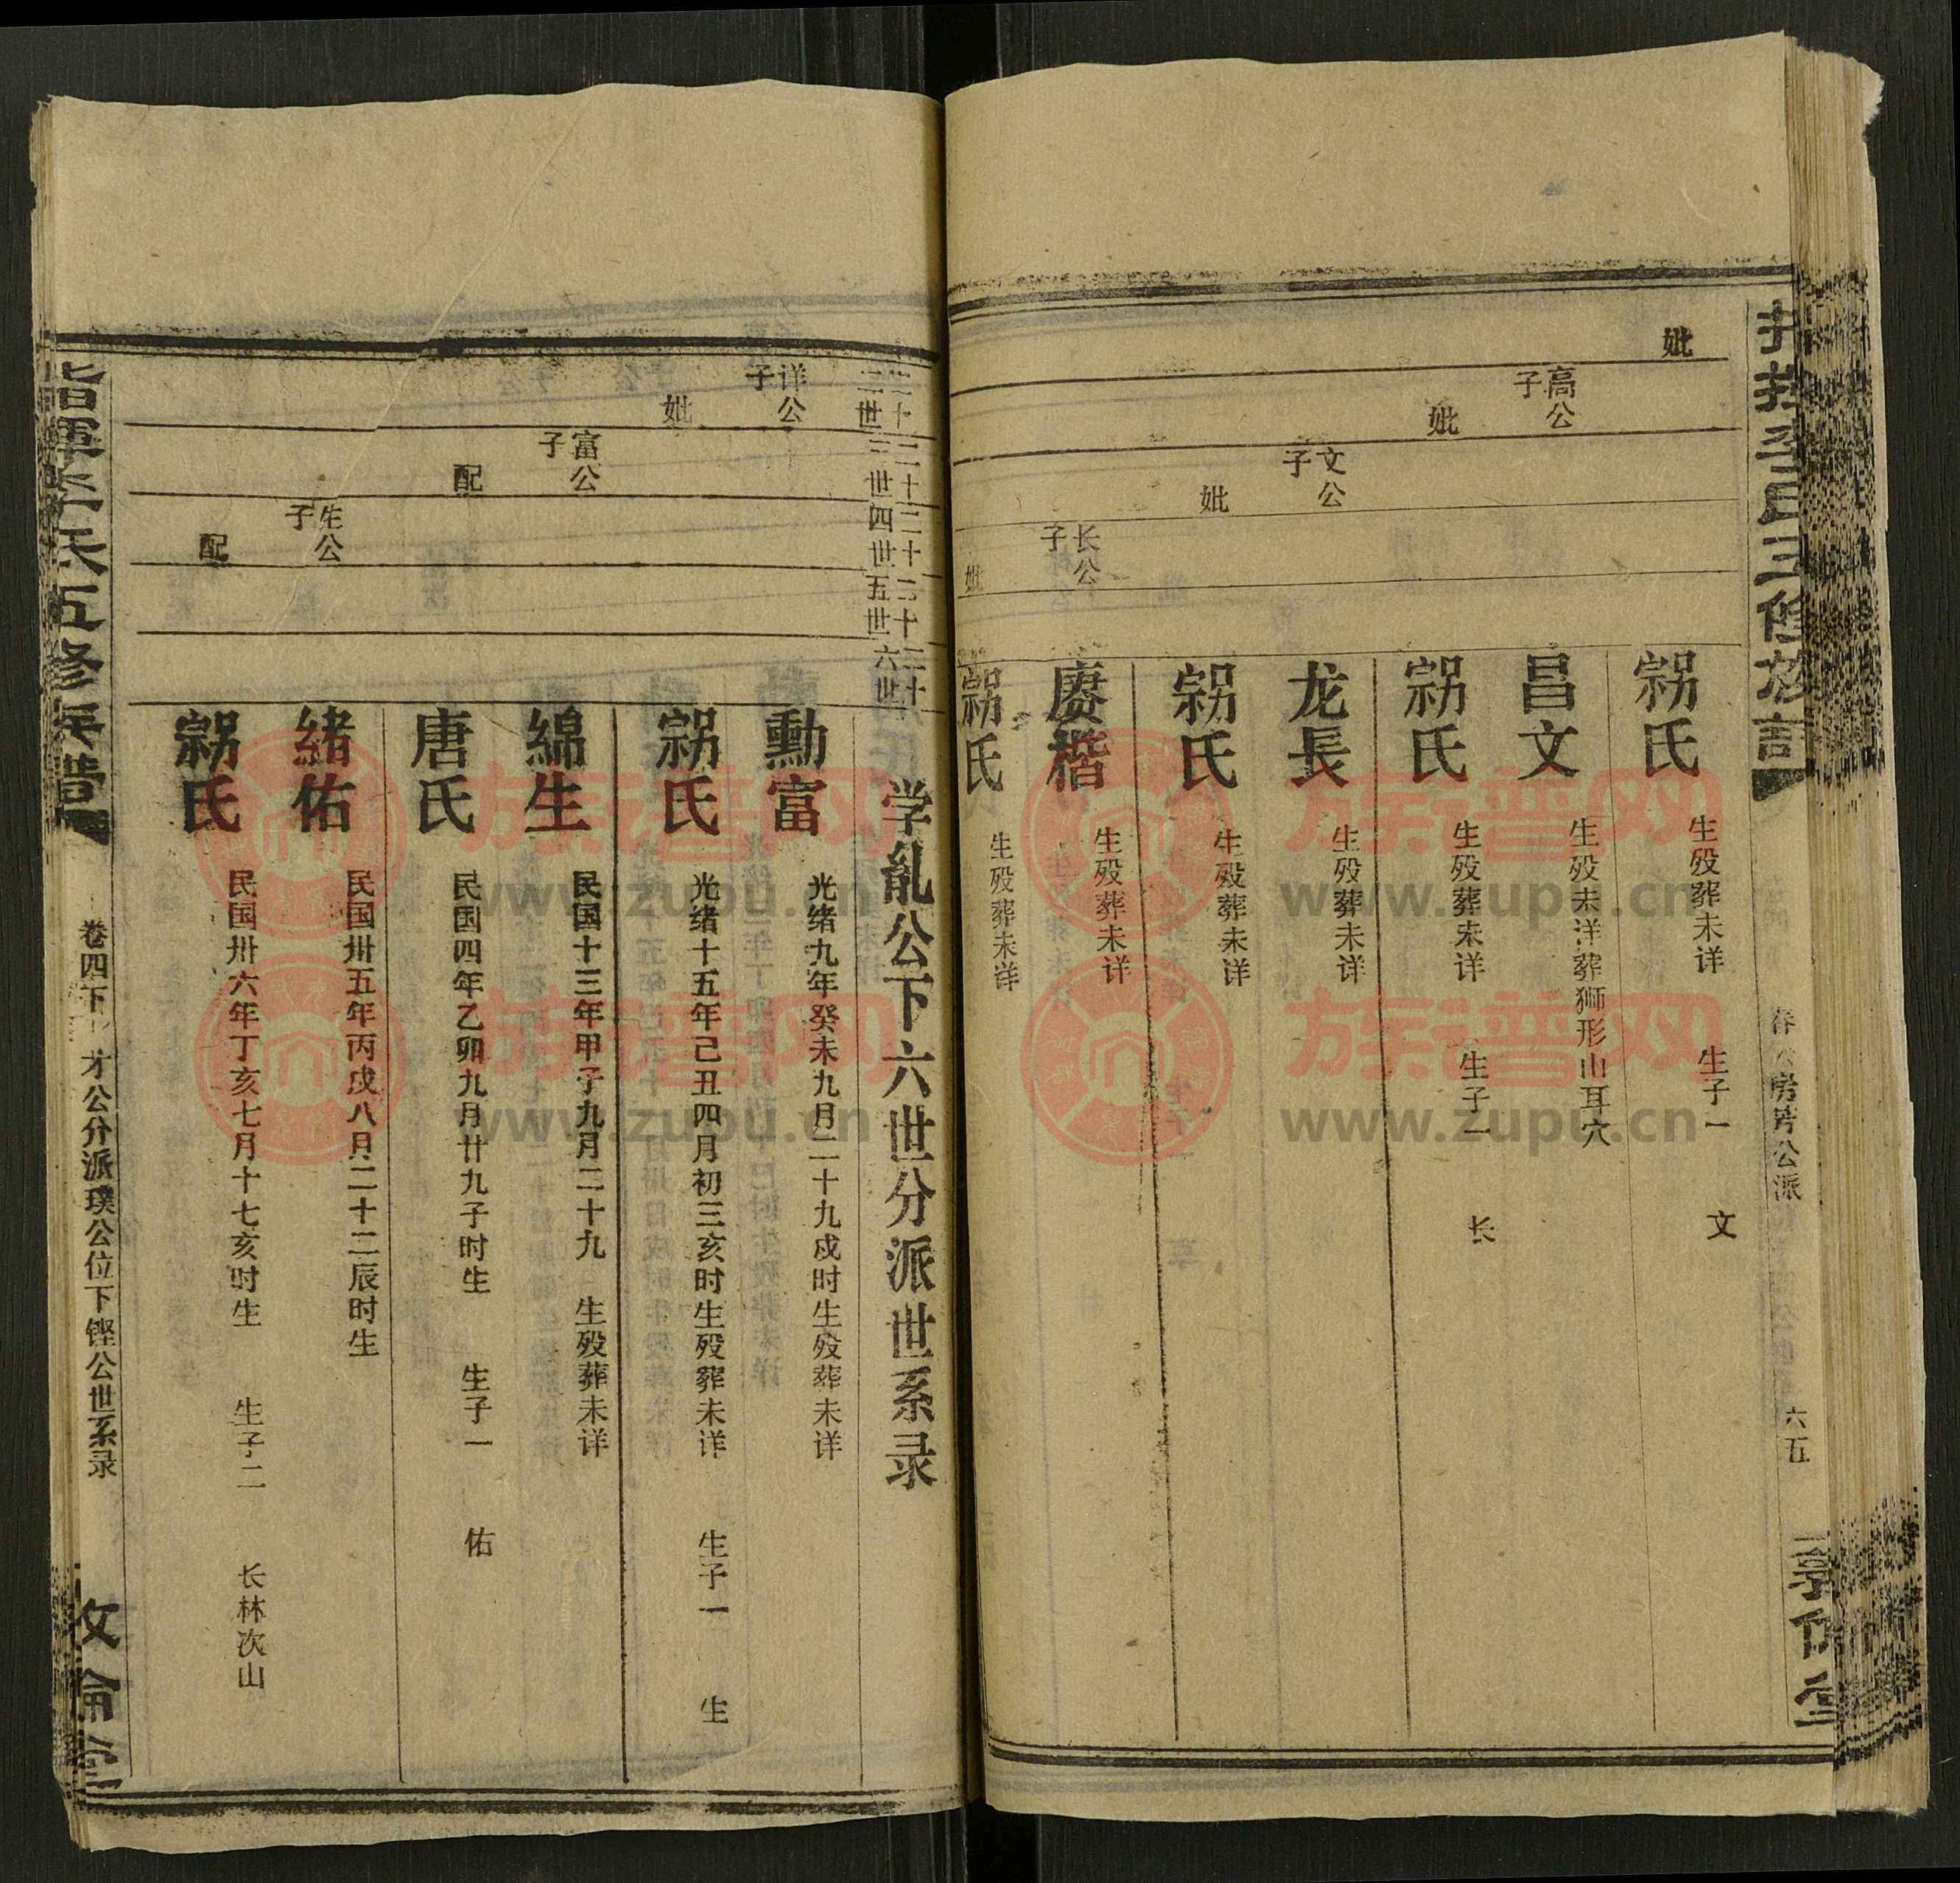 妣
氏
生殁葬未详 生子一 文
高公子
昌文
生殁未洋葬狮形山耳穴
妣
氏
生殁葬未详 生子一 长
文公子
龙長
生殁葬未详
妣
氏
生殁葬未详
长公子
赓楷
生殁葬未详
妣
氏
生殁葬未详
房芳公派
六五
二十二世
二十三世
二十四世
二十五世
二十六世
学乱公下六世分派世系录
详公子
勳富
光绪九年癸未九月二十九戍时生殁葬未详
妣
氏
光绪十五年己丑四月初三亥时生殁葬未详 生子一 生
富公子
綿生
民国十三年甲子九月二十九 生殁葬未详
配
唐氏
民国四年乙卯九月廿九子时生 生子一 佑
生公子
緒佑
民国卅五年丙戍八月二十二辰时生
配
氏
民国卅六年丁亥七月十七亥时生 生子二 长林次山
指揮李氏五修族譜
卷四下
才公分派璞公位下铿公世系录
敦倫堂
族谱网
www.zupu.cn
族谱网
www.zupu.cn
族谱网
www.zupu.cn
族谱网
www.zupu.cn